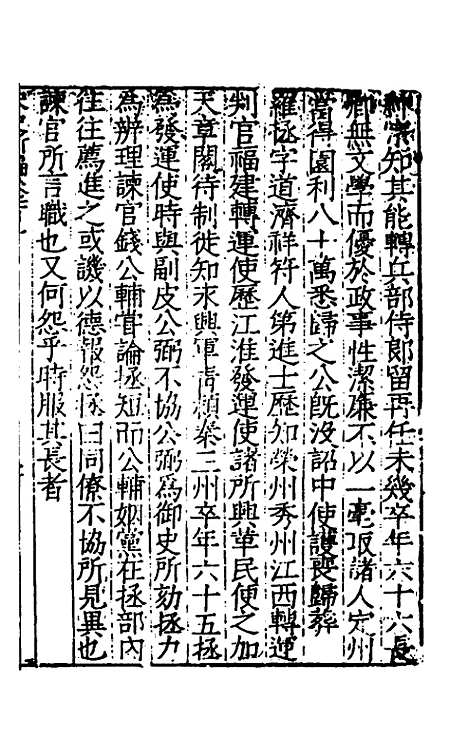 神宗知其能轉兵部侍郎留再任未幾卒年六十六長
卿無文學而優於政事性潔廉不以一毫取諸人定州
當得園利八十萬悉歸之公既沒詔中使護喪歸葬
羅拯字道濟祥符人第進士歷知榮州秀州江西轉運
判官福建轉運使歷江淮發運使諸所興革民使之加
天章閣待制徙知永興軍青潁秦三州卒年六十五拯
為發運使時與副皮公弼不協公弼為御史所劾拯力
為辨理諫官錢公輔嘗論拯短而公輔姻黨在拯部內
往往薦進之或譏以德報怨拯曰同僚不協所見異也
諫官所言職也又何怨乎時服其長者